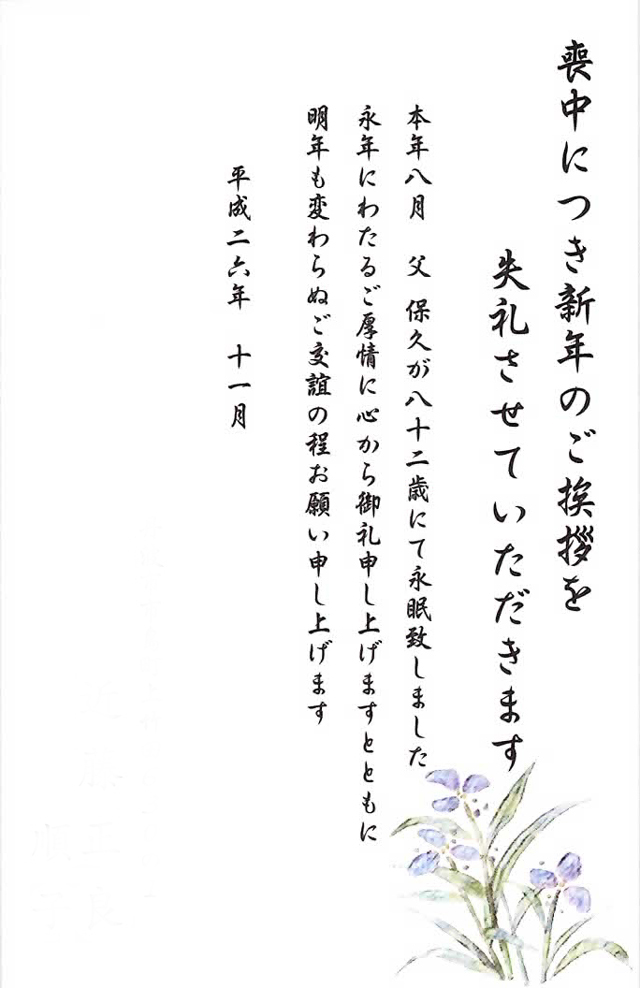 喪中につき新年のご挨拶を
失礼させていただきます
本年八月　父　保久が八十二歳にて永眠致しました
永年にわたるご厚情に心から御礼申し上げますとともに
明年も変わらぬご交誼の程お願い申し上げます
平成二六年　十一月